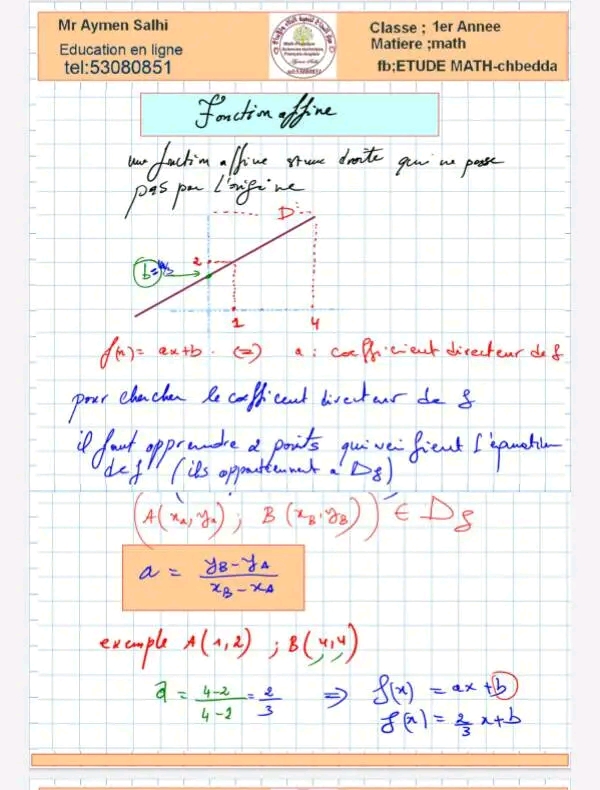 Mr Aymen Salhi
Education en ligne
tel:53080851
Classe ; 1er Annee
Matiere ;math
fb;ETUDE MATH-chbedda
Fonction affine
une fonction affine est une droite qui ne passe
pas par l'origine
D
2
b=4/3
1 4
f(x) = ax+b . <=> a : coefficient directeur de f
pour chercher le coefficent directeur de f
il faut apprendre 2 points qui verifient l'équation
de f (ils appartiennent a Df)
(A(xA, yA) ; B(xB, yB)) ∈ Df
a = (yB-yA)/(xB-xA)
exemple A(1,2) ; B(4,4)
a = (4-2)/(4-2) = 2/3 => f(x) = ax+b
f(x) = 2/3 x+b